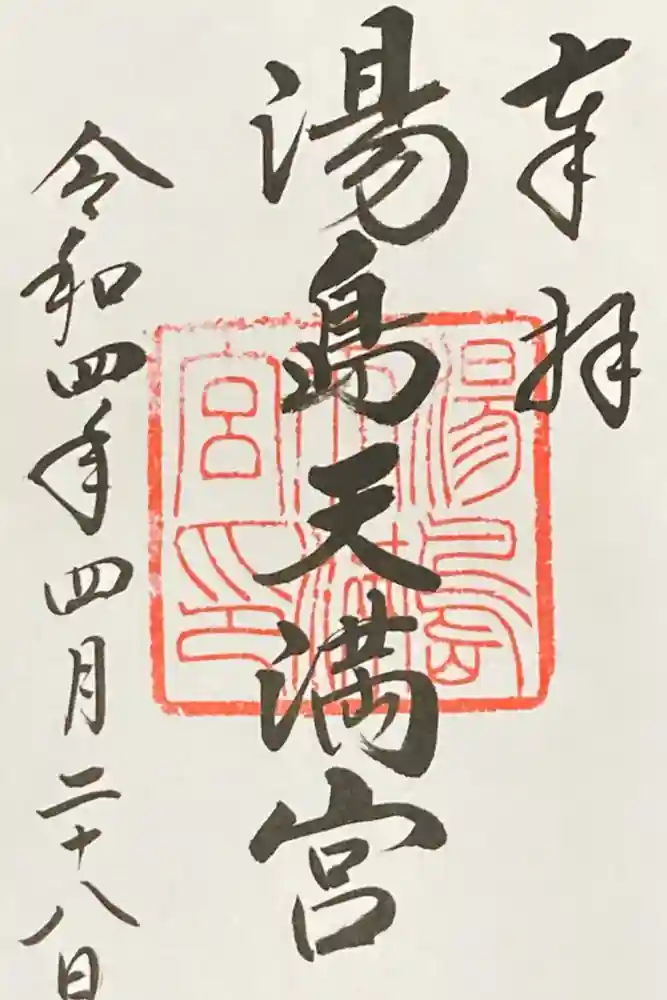 奉拝
湯島天満宮
令和四年四月二十八日
湯島天満宮印